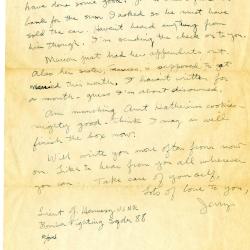 have done some good.
bank for the sum I asked so he must have
sold the car. Haven't heard anything from
him though. I'm sending the check on to you.
Munson just had her appendix out.
Also her sister, is supposed to get
this month. I haven't written for
a month. guess I'm about disowned.
Am munching Aunt Katherine cookies
mighty good. Think I may as well
finish the box now.
Will write you more often from now
on. Like to hear from you all whenever
you can. Take care of yourself,
lots of love to you
Jerry
Lieut. J. Hennesy, USNR
Bomber Fighting Sqdr 88